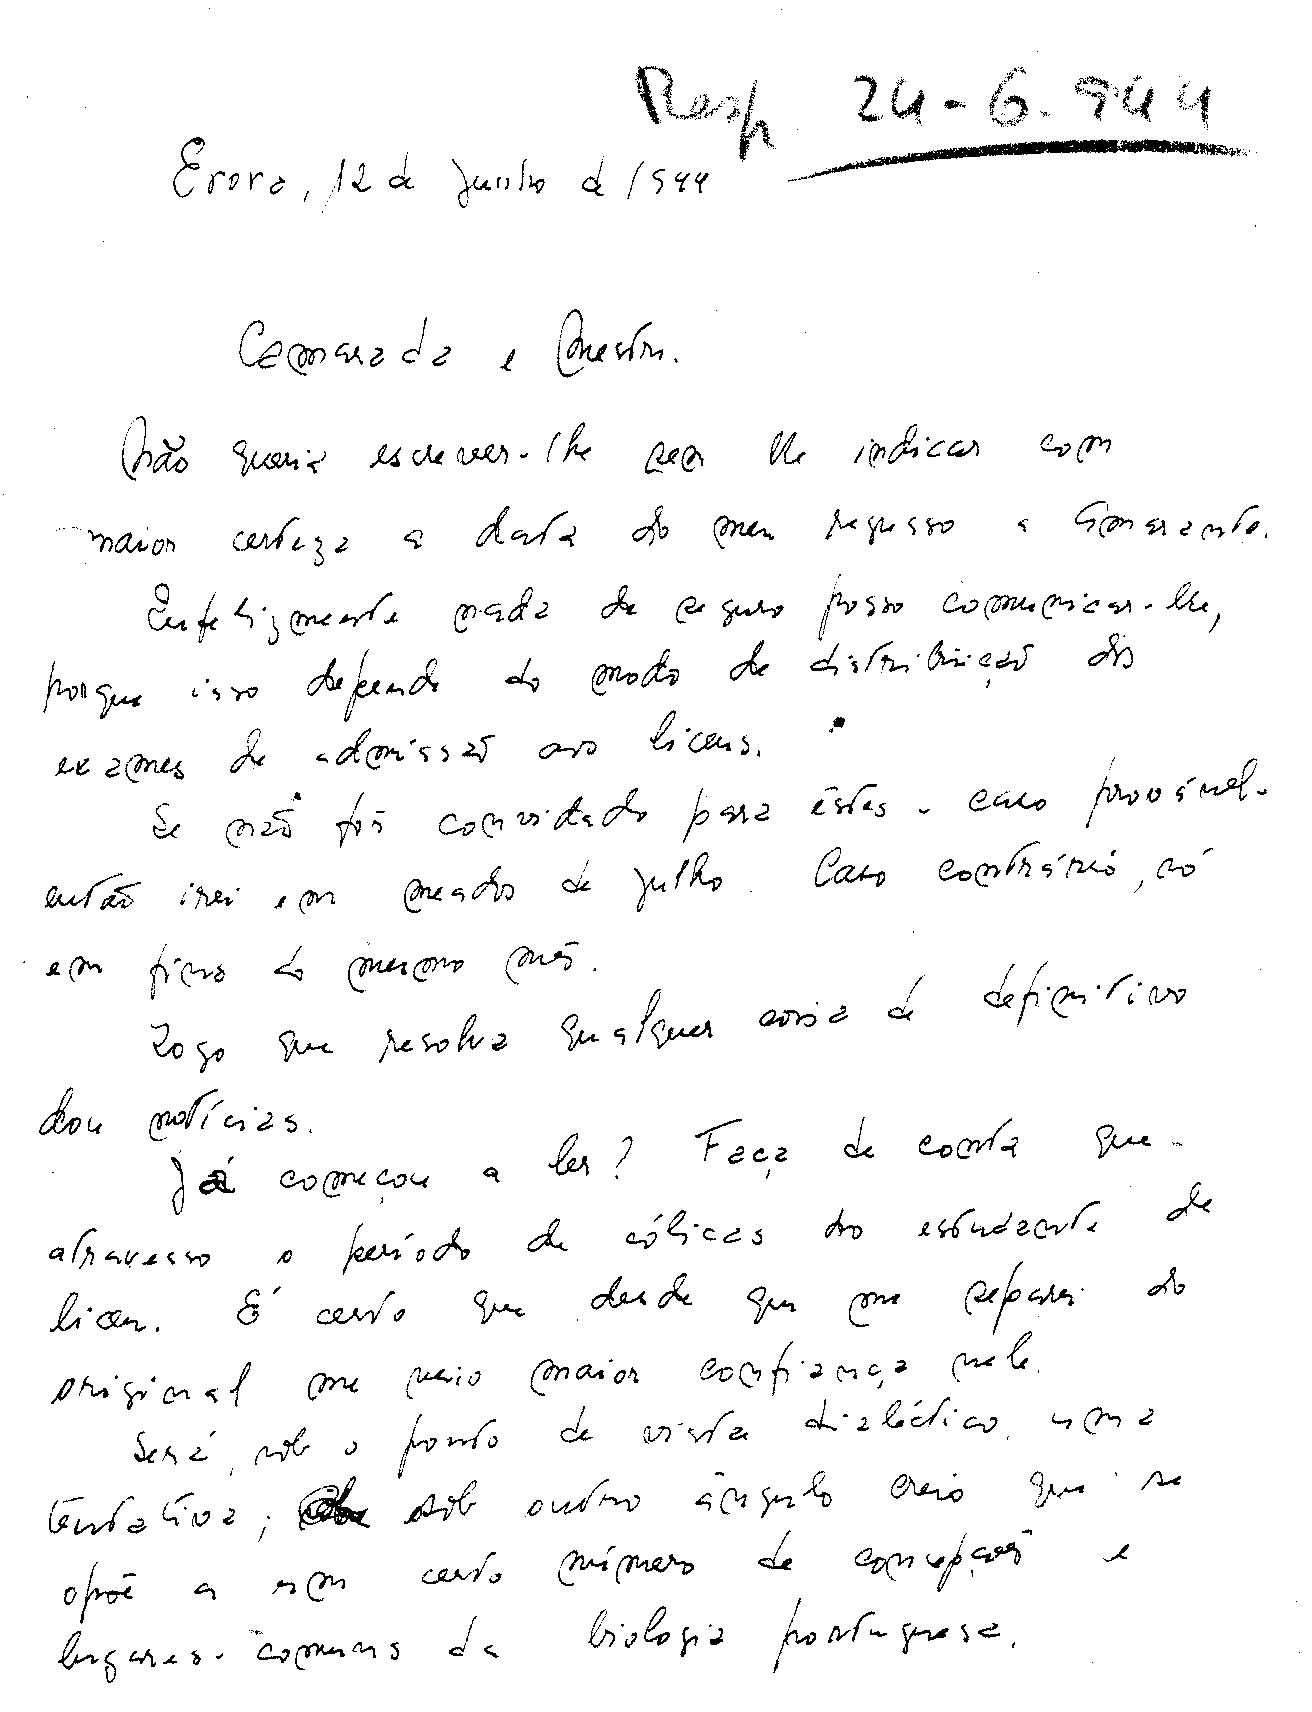 Resp 24-6-944
Évora, 12 de Junho de 1944
Camarada e Mestre.
Não queria escrever-lhe sem lhe indicar com
maior certeza a data do meu regresso a Amarante.
Infelizmente nada de seguro posso comunicar-lhe,
porque isso depende do modo de distribuição dos
exames de admissão aos liceus.
Se não fôr convidado para êstes - caso provável -
então irei em meados de julho. Caso contrário, só
em fins do mesmo mês.
Logo que resolva qualquer coisa de definitivo
dou notícias.
Já começou a ler? Faça de conta que
atravesso o período de cólicas do estudante de
liceu. É certo que desde que me separei do
original me veio maior confiança nele.
Será, sob o ponto de vista dialéctico, uma
tentativa; sob outro ângulo creio que se
opõe a um certo número de concepções e
lugares-comuns da biologia portuguesa.